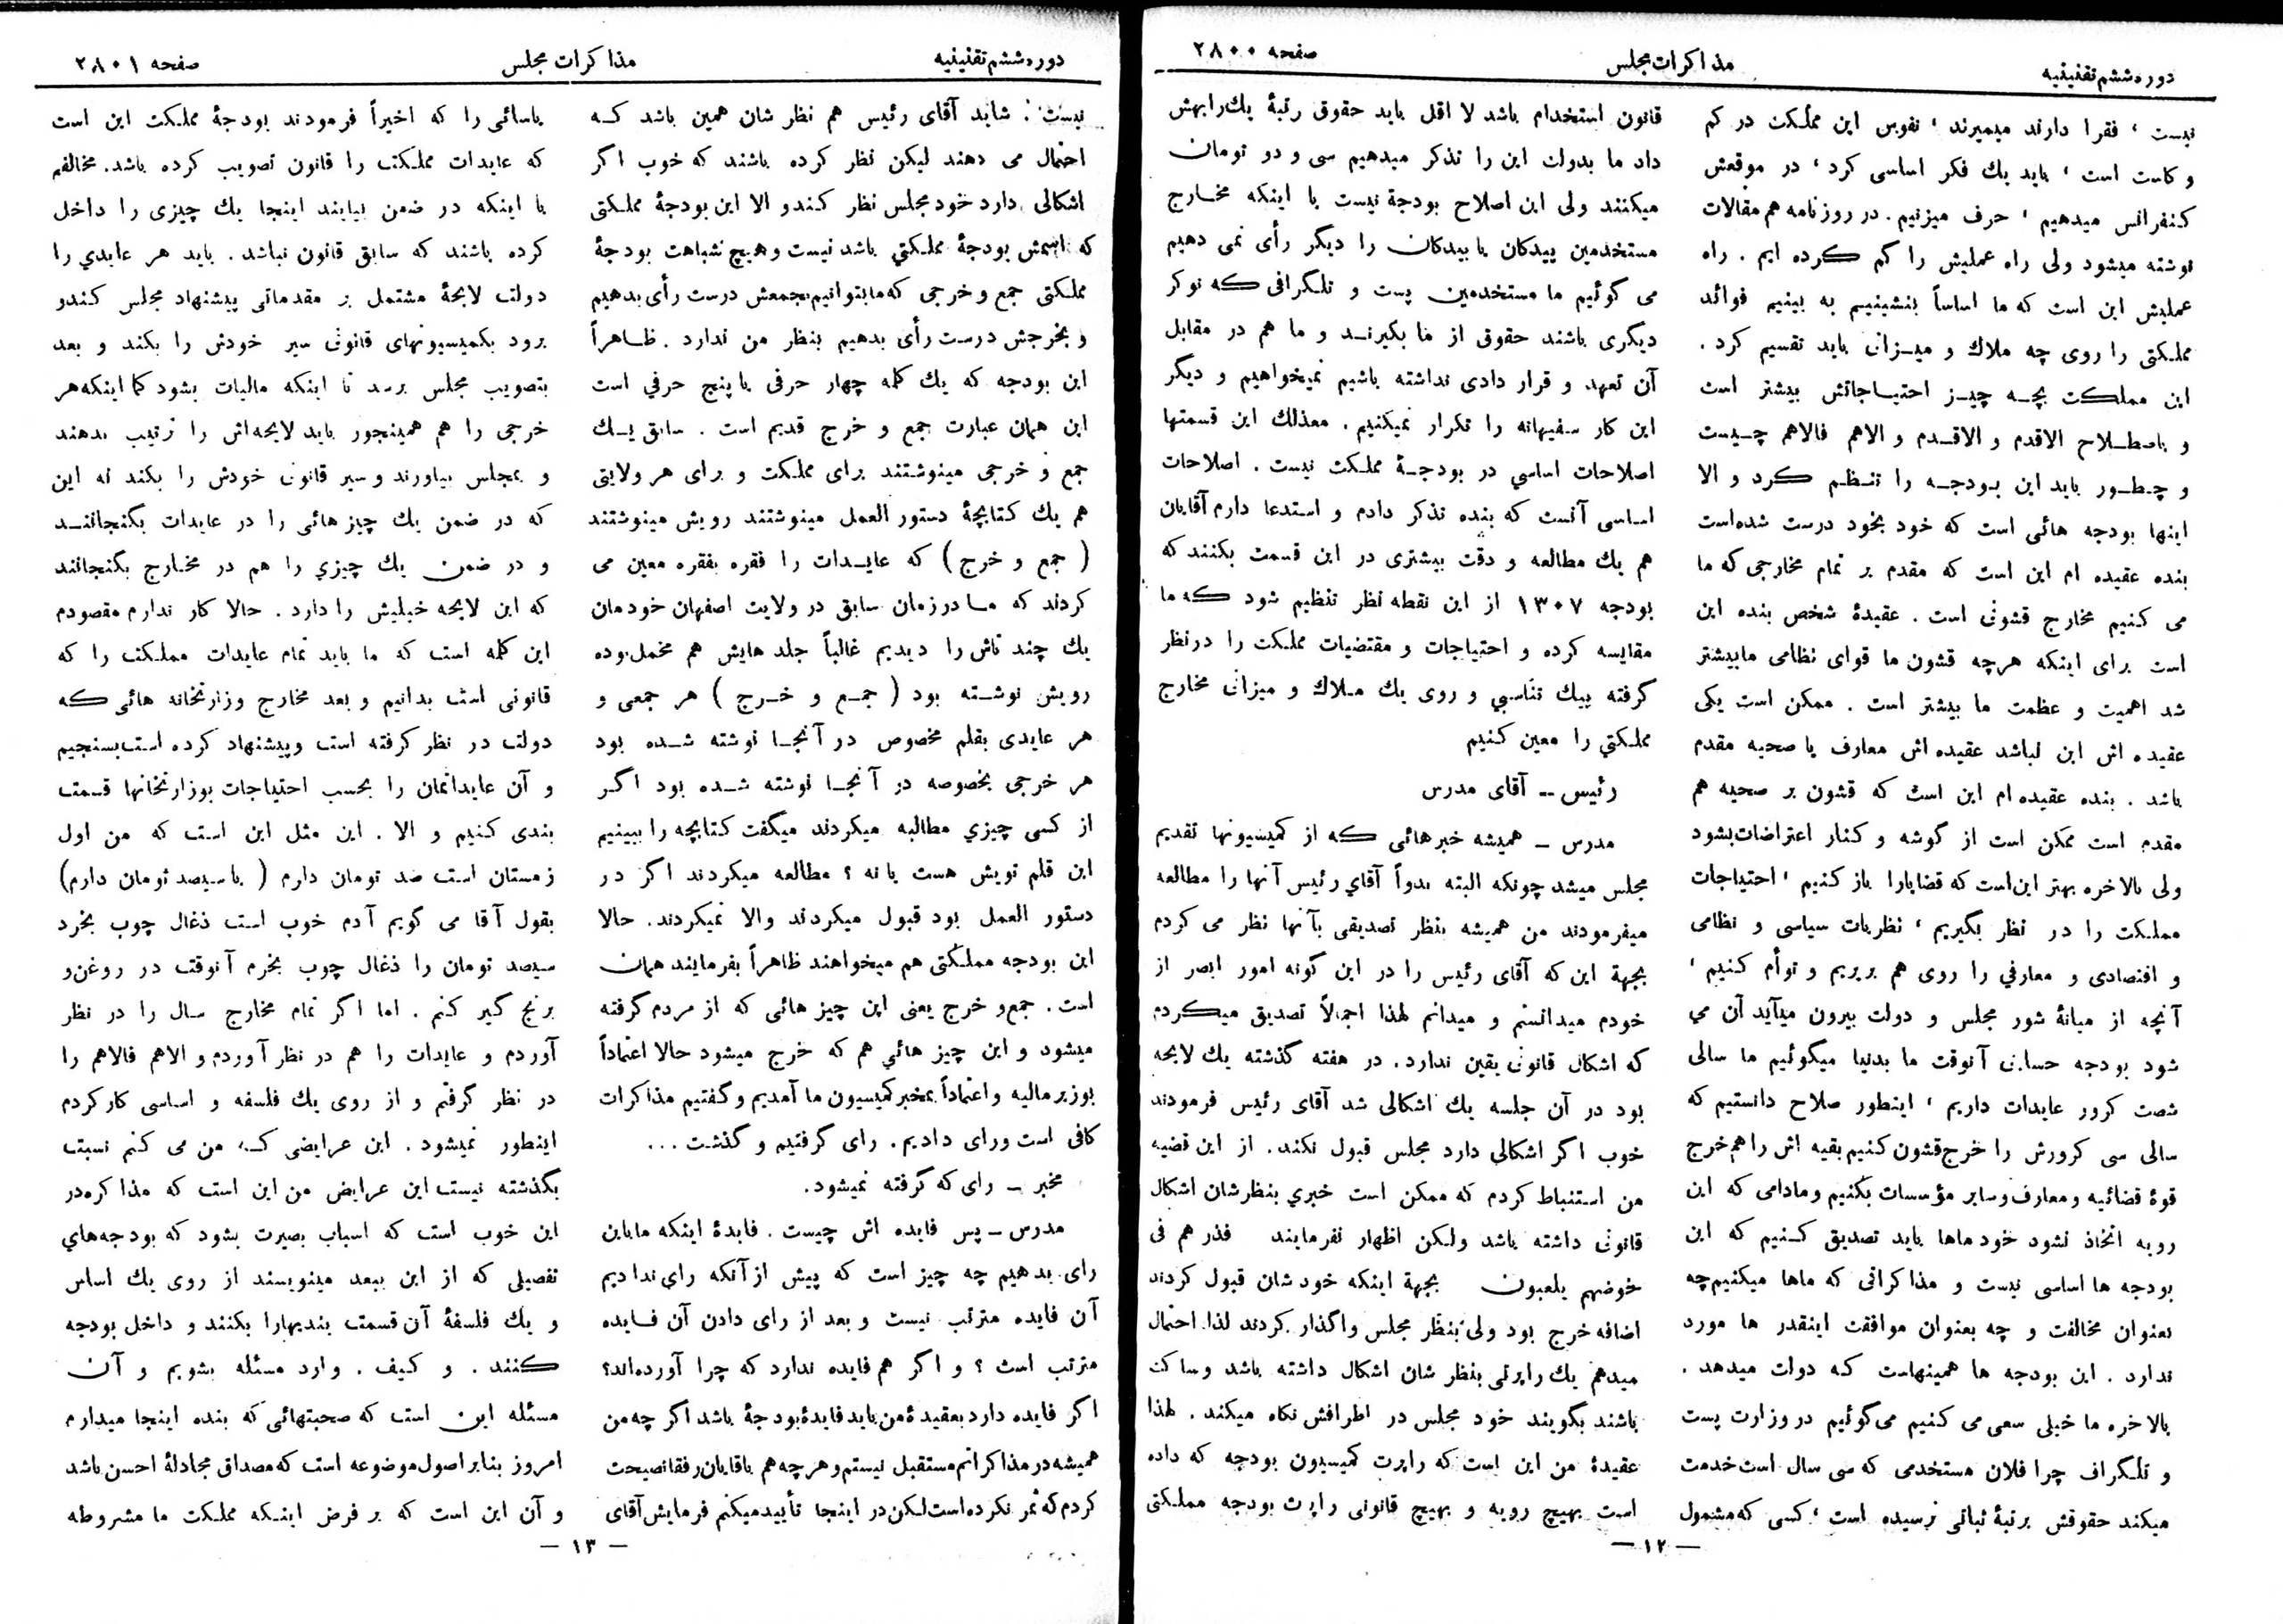 دوره ششم تقنینیه
مذاکرات مجلس
صفحه ۲۸۰۰
نیست ، فقرا دارند میمیرند ، نفوس این مملکت در کم
و کاست است ، باید یك فکر اساسی کرد ، در موقعش
کنفرانس میدهیم ، حرف میزنیم . در روزنامه هم مقالات
نوشته میشود ولی راه عملیش را گم کرده ایم . راه
عملیش این است که ما اساساً بنشینیم به بینیم فوائد
مملکتی را روی چه ملاك و میزان باید تقسیم کرد .
این مملکت بچه چیز احتیاجاتش بیشتر است
و باصطلاح الاقدم و الاقدم و الاهم فالاهم چیست
و چطور باید این بودجه را تنظم کرد و الا
اینها بودجه هائی است که خود بخود درست شده است
بنده عقیده ام این است که مقدم بر تمام مخارجی که ما
می کنیم مخارج قشونی است . عقیدهٔ شخص بنده این
است برای اینکه هرچه قشون ما قوای نظامی ما بیشتر
شد اهمیت و عظمت ما بیشتر است . ممکن است یکی
عقیده اش این نباشد عقیده اش معارف یا صحیه مقدم
باشد . بنده عقیده ام این است که قشون بر صحیه هم
مقدم است ممکن است از گوشه و کنار اعتراضات بشود
ولی بالاخره بهتر این است که قضایا را باز کنیم ، احتیاجات
مملکت را در نظر بگیریم ، نظریات سیاسی و نظامی
و اقتصادی و معارفی را روی هم بریزیم و توأم کنیم ،
آنچه از میانهٔ شور مجلس و دولت بیرون میآید آن می
شود بودجه حسابی آنوقت ما بدنیا میگوئیم ما سالی
شصت کرور عایدات داریم ، اینطور صلاح دانستیم که
سالی سی کرورش را خرج قشون کنیم بقیه اش را هم خرج
قوهٔ قضائیه و معارف و سایر مؤسسات بکنیم و مادامی که این
رویه اتخاذ نشود خود ماها باید تصدیق کنیم که این
بودجه ها اساسی نیست و مذاکراتی که ماها میکنیم چه
بعنوان مخالفت و چه بعنوان موافقت اینقدر ها مورد
ندارد . این بودجه ها همینهاست که دولت میدهد .
بالاخره ما خیلی سعی می کنیم می گوئیم در وزارت پست
و تلگراف چرا فلان مستخدمی که سی سال است خدمت
میکند حقوقش برتبهٔ ثباتی نرسیده است ، کسی که مشمول
قانون استخدام باشد لا اقل باید حقوق رتبهٔ یك را بهش
داد ما بدولت این را تذکر میدهیم سی و دو تومان
میکنند ولی این اصلاح بودجه نیست یا اینکه مخارج
مستخدمین بیدکان یا بیدکان را دیگر رأی نمی دهیم
می گوئیم ما مستخدمین پست و تلگرافی که نوکر
دیگری باشند حقوق از ما بگیرند و ما هم در مقابل
آن تعهد و قرار دادی نداشته باشیم نمیخواهیم و دیگر
این کار سفیهانه را تکرار نمیکنیم . معذلك این قسمتها
اصلاحات اساسی در بودجهٔ مملکت نیست . اصلاحات
اساسی آنست که بنده تذکر دادم و استدعا دارم آقایان
هم یك مطالعه و دقت بیشتری در این قسمت بکنند که
بودجه ۱۳۰۷ از این نقطه نظر تنظیم شود که ما
مقایسه کرده و احتیاجات و مقتضیات مملکت را در نظر
گرفته بیك تناسبی و روی یك ملاك و میزان مخارج
مملکتی را معین کنیم
رئیس -- آقای مدرس
مدرس - همیشه خبرهائی که از کمیسیونها تقدیم
مجلس میشد چونکه البته بدواً آقای رئیس آنها را مطالعه
میفرمودند من همیشه بنظر تصدیقی بآنها نظر می کردم
بجهة این که آقای رئیس را در این گونه امور ابصر از
خودم میدانستم و میدانم لهذا اجمالاً تصدیق میکردم
که اشکال قانونی یقین ندارد . در هفته گذشته یك لایحه
بود در آن جلسه یك اشکالی شد آقای رئیس فرمودند
خوب اگر اشکالی دارد مجلس قبول نکند . از این قضیه
من استنباط کردم که ممکن است خبری بنظرشان اشکال
قانونی داشته باشد ولکن اظهار نفرمایند فذرهم فی
خوضهم یلعبون بجهة اینکه خودشان قبول کردند
اضافه خرج بود ولی بنظر مجلس واگذار کردند لذا احتمال
میدهم یك راپرتی بنظر شان اشکال داشته باشد وساکت
باشند بگویند خود مجلس در اطرافش نگاه میکند . لهذا
عقیدهٔ من این است که راپرت کمیسیون بودجه که داده
است بهیچ رویه و بهیچ قانونی راپرت بودجه مملکتی
— ۱۲ —
دوره ششم تقنینیه
مذاکرات مجلس
صفحه ۲۸۰۱
نیست . شاید آقای رئیس هم نظر شان همین باشد که
احتمال می دهند لیکن نظر کرده باشند که خوب اگر
اشکالی دارد خود مجلس نظر کند و الا این بودجهٔ مملکتی
که اسمش بودجهٔ مملکتی باشد نیست و هیچ شباهت بودجهٔ
مملکتی جمع و خرجی که ما بتوانیم بجمعش درست رأی بدهیم
و بخرجش درست رأی بدهیم بنظر من ندارد . ظاهراً
این بودجه که یك کلمه چهار حرفی یا پنج حرفی است
این همان عبارت جمع و خرج قدیم است . سابق یك
جمع و خرجی مینوشتند برای مملکت و برای هر ولایتی
هم یك کتابچهٔ دستور العمل مینوشتند رویش مینوشتند
( جمع و خرج ) که عایدات را فقره بفقره معین می
کردند که ما در زمان سابق در ولایت اصفهان خودمان
یك چند تاش را دیدیم غالباً جلد هایش هم مخمل بوده
رویش نوشته بود ( جمع و خرج ) هر جمعی و
هر عایدی بقلم مخصوص در آنجا نوشته شده بود
هر خرجی بخصوصه در آنجا نوشته شده بود اگر
از کسی چیزی مطالبه میکردند میگفت کتابچه را ببینیم
این قلم تویش هست یا نه ؟ مطالعه میکردند اگر در
دستور العمل بود قبول میکردند والا نمیکردند . حالا
این بودجه مملکتی هم میخواهند ظاهراً بفرمایند همان
است . جمع و خرج یعنی این چیز هائی که از مردم گرفته
میشود و این چیز هائی هم که خرج میشود حالا اعتماداً
بوزیر مالیه و اعتماداً بمخبر کمیسیون ما آمدیم و گفتیم مذاکرات
کافی است ورای دادیم . رای گرفتیم و گذشت ...
مخبر - رای که گرفته نمیشود .
مدرس - پس فایده اش چیست . فایدهٔ اینکه ما باین
رای بدهیم چه چیز است که پیش از آنکه رای ندادیم
آن فایده مترتب نیست و بعد از رای دادن آن فایده
مترتب است ؟ و اگر هم فایده ندارد که چرا آورده‌اند؟
اگر فایده دارد بعقیدهٔ من باید فایدهٔ بودجهٔ باشد اگر چه من
همیشه در مذاکراتم مستقبل نیستم و هر چه هم باقایان رفقا نصیحت
کردم که ثمر نکرده است لکن در اینجا تأیید میکنم فرمایش آقای
یاسائی را که اخیراً فرمودند بودجهٔ مملکت این است
که عایدات مملکت را قانون تصویب کرده باشد . مخالفم
با اینکه در ضمن بیایند اینجا یك چیزی را داخل
کرده باشند که سابق قانون نباشد . باید هر عایدی را
دولت لایحهٔ مشتمل بر مقدماتی پیشنهاد مجلس کند و
برود بکمیسیونهای قانونی سیر خودش را بکند و بعد
بتصویب مجلس برسد تا اینکه مالیات بشود کما اینکه هر
خرجی را هم همینجور باید لایحه اش را ترتیب بدهند
و بمجلس بیاورند و سیر قانونی خودش را بکند نه این
که در ضمن یك چیز هائی را در عایدات بگنجانند
و در ضمن یك چیزی را هم در مخارج بگنجانند
که این لایحه خیلیش را دارد . حالا کار ندارم مقصودم
این کلمه است که ما باید تمام عایدات مملکت را که
قانونی است بدانیم و بعد مخارج وزارتخانه هائی که
دولت در نظر گرفته است و پیشنهاد کرده است بسنجیم
و آن عایداتمان را بحسب احتیاجات بوزارتخانها قسمت
بندی کنیم و الا . این مثل این است که من اول
زمستان است صد تومان دارم ( یا سیصد تومان دارم )
بقول آقا می گویم آدم خوب است ذغال چوب بخرد
سیصد تومان را ذغال چوب بخرم آنوقت در روغن و
برنج گیر کنم . اما اگر تمام مخارج سال را در نظر
آوردم و عایدات را هم در نظر آوردم و الاهم فالاهم را
در نظر گرفتم و از روی یك فلسفه و اساسی کار کردم
اینطور نمیشود . این عرایضی که من می کنم نسبت
بگذشته نیست این عرایض من این است که مذاکره در
این خوب است که اسباب بصیرت بشود که بودجه های
تفصیلی که از این ببعد مینویسند از روی یك اساس
و یك فلسفهٔ آن قسمت بندیهارا بکنند و داخل بودجه
کنند . و کیف . وارد مسئله بشویم و آن
مسئله این است که صحبتهائی که بنده اینجا میدارم
امروز بنابر اصول موضوعه است که مصداق مجادلهٔ احسن باشد
و آن این است که بر فرض اینکه مملکت ما مشروطه
— ۱۳ —